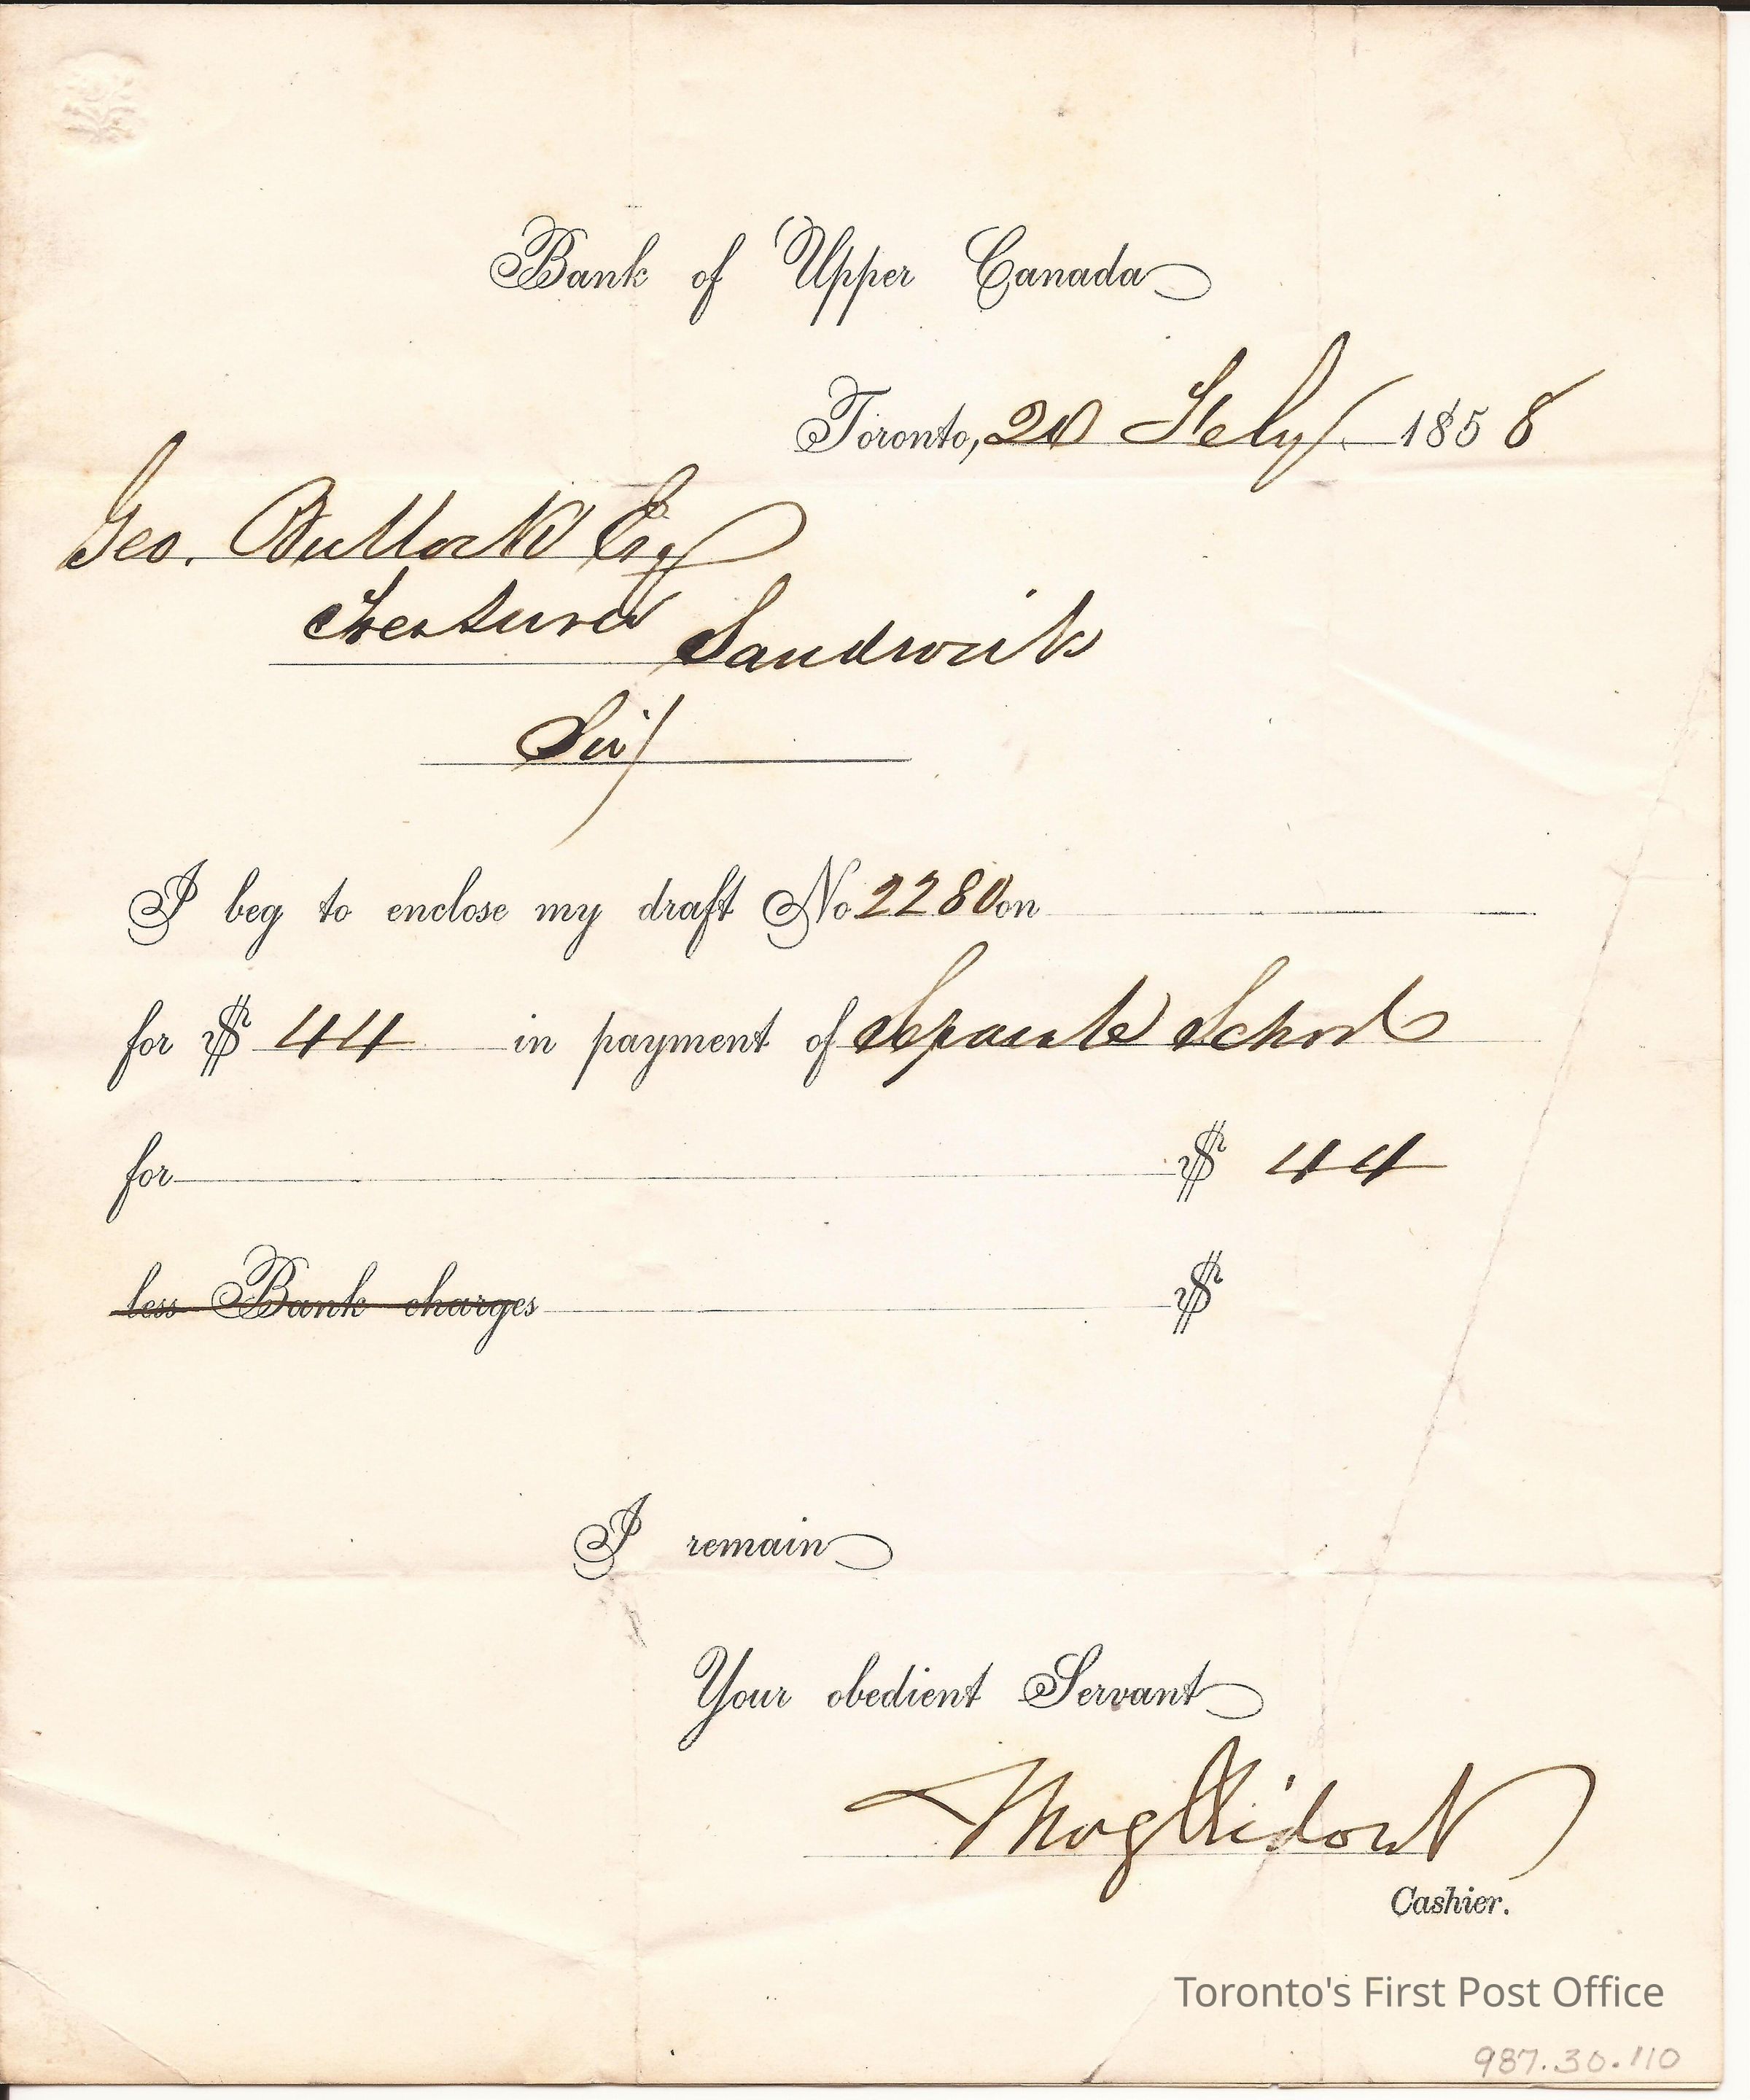 Bank of Upper Canada
Toronto, 20 Feby 1858
Geo. Bullock Esq
Treasurer Sandwich
Sir
I beg to enclose my draft No 2280 on
for $ 44 in payment of Separate School
for $ 44
less Bank charges $
I remain
Your obedient Servant
Thos G Ridout
Cashier.
Toronto's First Post Office
987.30.110